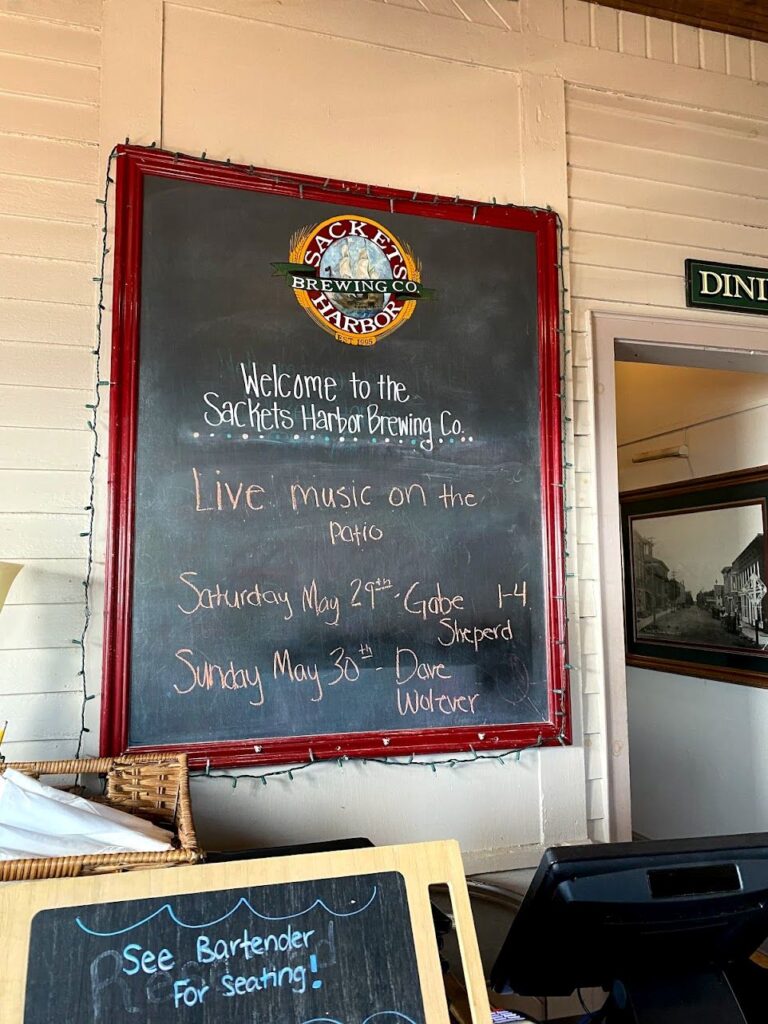 SACKETS
BREWING CO.
HARBOR
EST 1995
Welcome to the
Sackets Harbor Brewing Co.
Live music on the
patio
Saturday May 29th - Gabe 1-4
Sheperd
Sunday May 30th - Dave
Wolever
DINI
See Bartender
For seating!